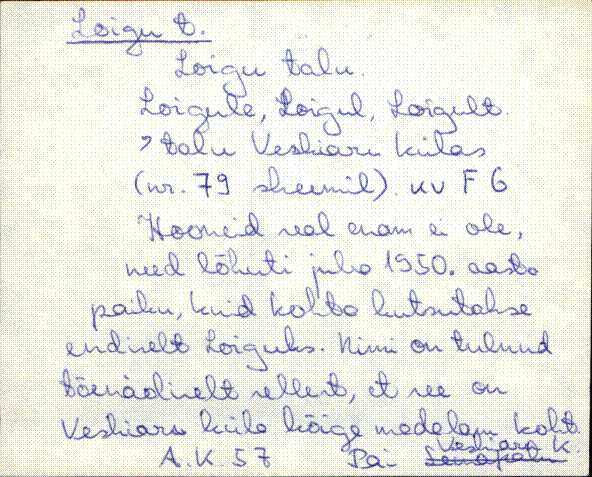 Loigu t.
Loigu talu.
Loigule, Loigul, Loigult.
> talu Veskiaru külas
(nr. 79 skeemil). kv F 6
Hooneid seal enam ei ole,
need lõhuti juba 1950. aasta
paiku, kuid kohta kutsutakse
endiselt Loiguks. Nimi on tulnud
tõenäoliselt sellest, et see on
Veskiaru küla kõige madalam koht.
Veskiaru K.
A.K. 57 Pä-